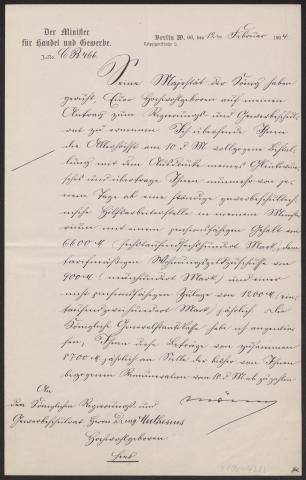 Der Minister
für Handel und Gewerbe.
Berlin W. 66, den 12ten Februar 1904
Leipzigerstraße 2.
J.-No. C. B. 466
Seine Majestät der König haben
geruht, Euer Hochwohlgeboren auf meinen
Antrag zum Regierungs- und Gewerbeschul-
rat zu ernennen. Ich übersende Ihnen
die Allerhöchst am 10. d. M. vollzogene Bestal-
lung mit dem Ausdrucke meines Glückwun-
sches und übertrage Ihnen nunmehr von je-
nem Tage ab eine ständige gewerbeschultech-
nische Hilfsarbeiterstelle in meinem Ministe-
rium mit einem pensionsfähigen Gehalt von
6600 M (sechstausendsechshundert Mark), dem
tarifmäßigen Wohnungsgeldzuschusse von
900 M (neunhundert Mark) und einer
nicht pensionsfähigen Zulage von 1200 M (ein-
tausendzweihundert Mark) jährlich. Die
Königliche Generalstaatskasse habe ich angewie-
sen, Ihnen diese Beträge von zusammen
8700 M jährlich an Stelle der bisher von Ihnen
bezogenen Remuneration vom 10. d. M. ab zu zahlen.
An
den Königlichen Regierungs- und
Gewerbeschulrat Herrn Dr. ing. Muthesius
Hochwohlgeboren
hier